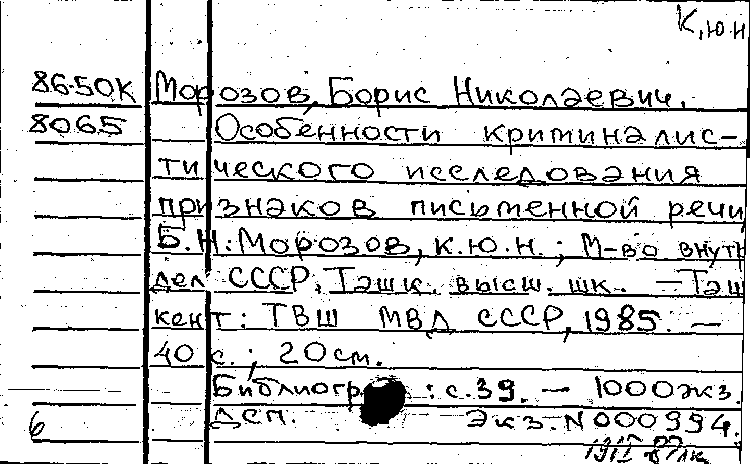 К,ю.н
86-50К Морозов, Борис Николаевич.
8065 Особенности криминалис-
тического исследования
признаков письменной речи
Б.Н. Морозов, к.ю.н. ; М-во внутр
дел СССР, Ташк. высш. шк. — Таш
кент : ТВШ МВД СССР, 1985. —
40 с. ; 20 см.
Библиогр : с.39. — 1000экз.
ДСП. Экз. N000994.
6